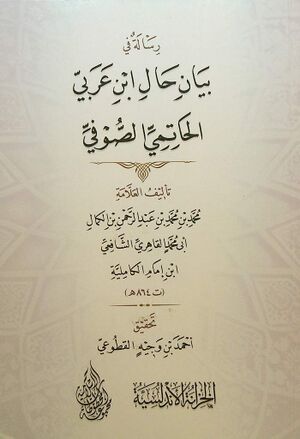 رِسَالَةٌ فِي
بَيَانِ حَالِ ابْنِ عَرَبِيّ
الحَاتِمِيِّ الصُّوْفِيِّ
تَأْلِيْفُ العَلَّامَةِ
مُحَمَّدِ بْنِ مُحَمَّدِ بْنِ عَبْدِ الرَّحْمَنِ بْنِ الكَمَالِ
أَبِي مُحَمَّدٍ القَاهِرِيِّ الشَّافِعِيِّ
ابْنِ إِمَامِ الكَامِلِيَّةِ
(ت ٨٦٤هـ)
تَحْقِيْقُ
أَحْمَدَ بْنِ وَجِيْهٍ القَطُوعِيّ
الخِزَانَةُ الأَنْدَلُسِيَّةُ